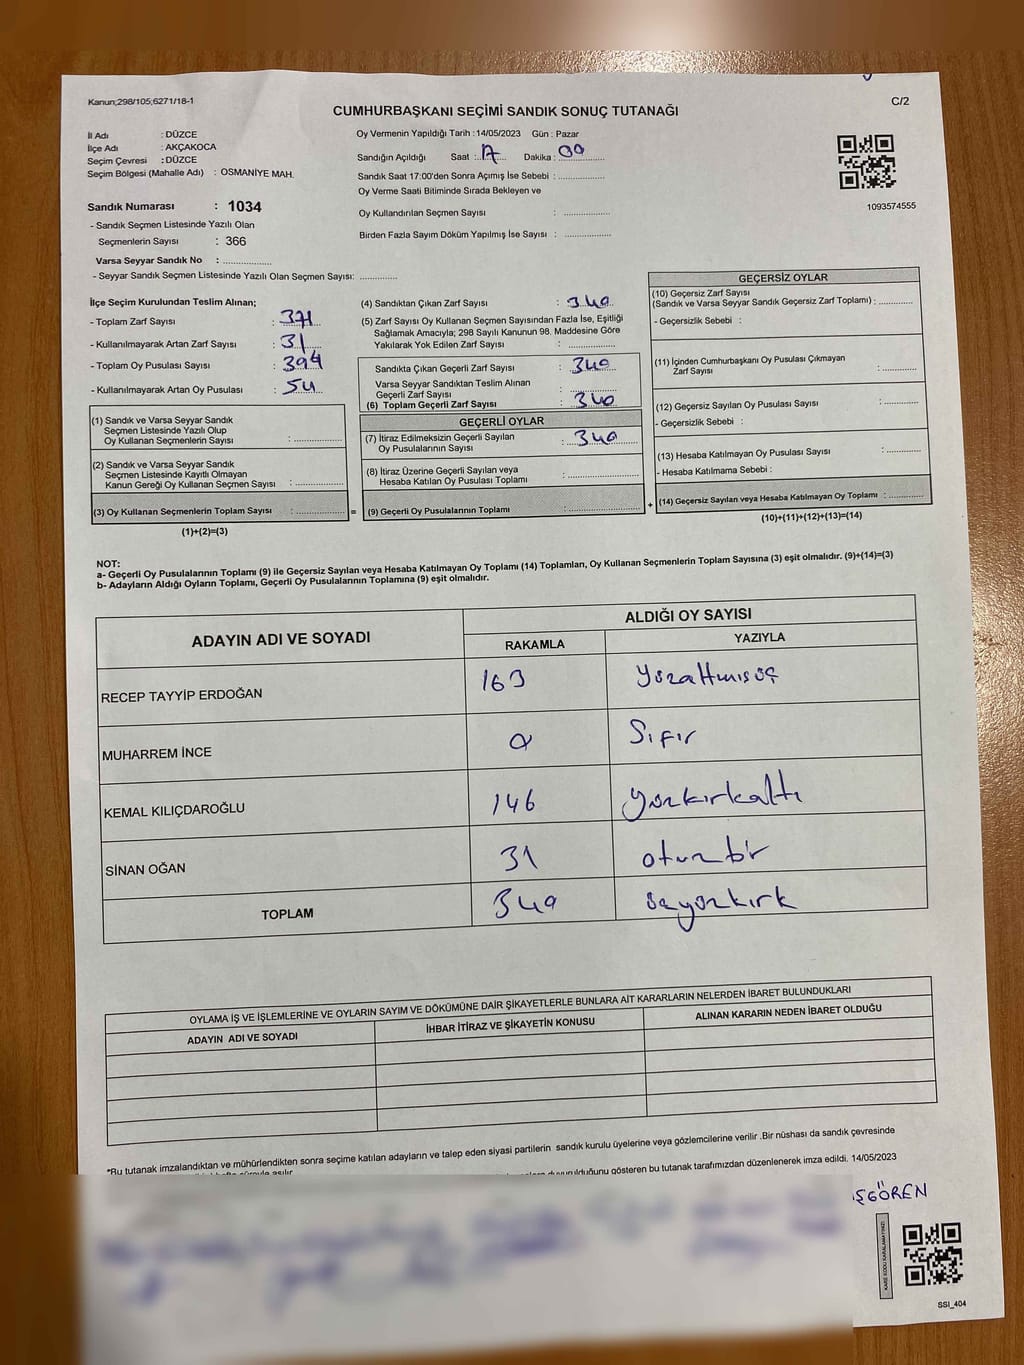 Kanun;298/105;6271/18-1
C/2
CUMHURBAŞKANI SEÇİMİ SANDIK SONUÇ TUTANAĞI
İl Adı : DÜZCE
İlçe Adı : AKÇAKOCA
Seçim Çevresi : DÜZCE
Seçim Bölgesi (Mahalle Adı) : OSMANİYE MAH.
Sandık Numarası : 1034
- Sandık Seçmen Listesinde Yazılı Olan
Seçmenlerin Sayısı : 366
Varsa Seyyar Sandık No : ..............
- Seyyar Sandık Seçmen Listesinde Yazılı Olan Seçmen Sayısı: ............
Oy Vermenin Yapıldığı Tarih : 14/05/2023 Gün : Pazar
Sandığın Açıldığı Saat : 17 Dakika : 00
Sandık Saat 17:00'den Sonra Açımış İse Sebebi : ..............
Oy Verme Saati Bitiminde Sırada Bekleyen ve
Oy Kullandırılan Seçmen Sayısı : ..............
Birden Fazla Sayım Döküm Yapılmış İse Sayısı : ..............
1093574555
İlçe Seçim Kurulundan Teslim Alınan;
- Toplam Zarf Sayısı : 371
- Kullanılmayarak Artan Zarf Sayısı : 31
- Toplam Oy Pusulası Sayısı : 394
- Kullanılmayarak Artan Oy Pusulası : 54
(1) Sandık ve Varsa Seyyar Sandık
Seçmen Listesinde Yazılı Olup
Oy Kullanan Seçmenlerin Sayısı : ..............
(2) Sandık ve Varsa Seyyar Sandık
Seçmen Listesinde Kayıtlı Olmayan
Kanun Gereği Oy Kullanan Seçmen Sayısı : ..............
(3) Oy Kullanan Seçmenlerin Toplam Sayısı : .............. =
(1)+(2)=(3)
(4) Sandıktan Çıkan Zarf Sayısı : 340
(5) Zarf Sayısı Oy Kullanan Seçmen Sayısından Fazla İse, Eşitliği
Sağlamak Amacıyla; 298 Sayılı Kanunun 98. Maddesine Göre
Yakılarak Yok Edilen Zarf Sayısı : ..............
Sandıkta Çıkan Geçerli Zarf Sayısı : 340
Varsa Seyyar Sandıktan Teslim Alınan
Geçerli Zarf Sayısı : ..............
(6) Toplam Geçerli Zarf Sayısı : 340
GEÇERLİ OYLAR
(7) İtiraz Edilmeksizin Geçerli Sayılan
Oy Pusulalarının Sayısı : 340
(8) İtiraz Üzerine Geçerli Sayılan veya
Hesaba Katılan Oy Pusulası Toplamı : ..............
(9) Geçerli Oy Pusulalarının Toplamı : .............. +
GEÇERSİZ OYLAR
(10) Geçersiz Zarf Sayısı
(Sandık ve Varsa Seyyar Sandık Geçersiz Zarf Toplamı) : ..........
- Geçersizlik Sebebi :
(11) İçinden Cumhurbaşkanı Oy Pusulası Çıkmayan
Zarf Sayısı : ..........
(12) Geçersiz Sayılan Oy Pusulası Sayısı : ..........
- Geçersizlik Sebebi :
(13) Hesaba Katılmayan Oy Pusulası Sayısı : ..........
- Hesaba Katılmama Sebebi :
(14) Geçersiz Sayılan veya Hesaba Katılmayan Oy Toplamı : ..........
(10)+(11)+(12)+(13)=(14)
NOT:
a- Geçerli Oy Pusulalarının Toplamı (9) ile Geçersiz Sayılan veya Hesaba Katılmayan Oy Toplamı (14) Toplamları, Oy Kullanan Seçmenlerin Toplam Sayısına (3) eşit olmalıdır. (9)+(14)=(3)
b- Adayların Aldığı Oyların Toplamı, Geçerli Oy Pusulalarının Toplamına (9) eşit olmalıdır.
ADAYIN ADI VE SOYADI
ALDIĞI OY SAYISI
RAKAMLA YAZIYLA
RECEP TAYYİP ERDOĞAN 163 yüzaltmışüç
MUHARREM İNCE 0 Sıfır
KEMAL KILIÇDAROĞLU 146 yüzkırkaltı
SİNAN OĞAN 31 otuzbir
TOPLAM 340 üçyüzkırk
OYLAMA İŞ VE İŞLEMLERİNE VE OYLARIN SAYIM VE DÖKÜMÜNE DAİR ŞİKAYETLERLE BUNLARA AİT KARARLARIN NELERDEN İBARET BULUNDUKLARI
ADAYIN ADI VE SOYADI İHBAR İTİRAZ VE ŞİKAYETİN KONUSU ALINAN KARARIN NEDEN İBARET OLDUĞU
*Bu tutanak imzalandıktan ve mühürlendikten sonra seçime katılan adayların ve talep eden siyasi partilerin sandık kurulu üyelerine veya gözlemcilerine verilir .Bir nüshası da sandık çevresinde
duyurulduğunu gösteren bu tutanak tarafımızdan düzenlenerek imza edildi. 14/05/2023
ŞGÖREN
SSİ_404